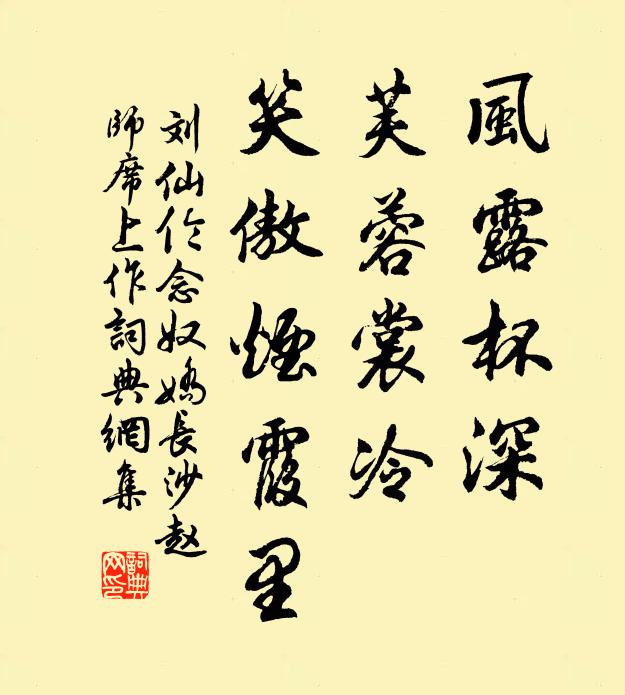 風露杯深
芙蓉裳冷
笑傲煙霞里
刘仙伦念奴嬌長沙赵
師席上作詞典網集
詞典
网印